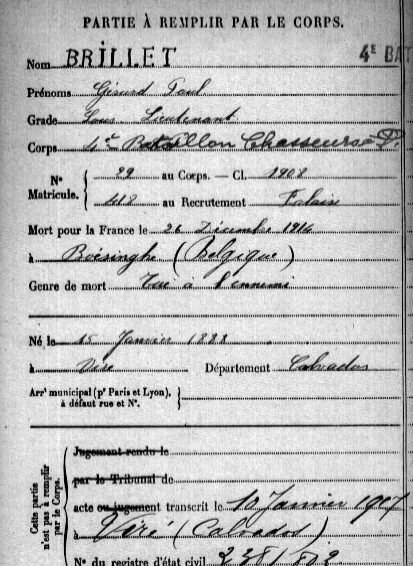 PARTIE À REMPLIR PAR LE CORPS.
Nom BRILLET
4E BAT
Prénoms Gérard Paul
Grade Sous Lieutenant
Corps 4e Bataillon Chasseurs à P.
Nos Matricule.
29 au Corps. — Cl. 1908
418 au Recrutement Falaise
Mort pour la France le 26 Décembre 1914
à Boésinghe (Belgique)
Genre de mort Tué à l'ennemi
Né le 15 Janvier 1888
à Vire Département Calvados
Arrt municipal (pr Paris et Lyon),
à défaut rue et No.
Cette partie
n'est pas à remplir
par le Corps.
Jugement rendu le
par le Tribunal de
acte ou jugement transcrit le 10 Janvier 1917
à Viré (Calvados)
No du registre d'état civil